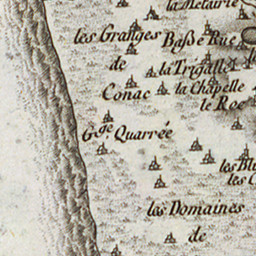 la Metairie
les Granges Basse Rue
de la Trigalle
Conac la Chapelle
le Roc
Gde. Quarrée
les
les
les Domaines
de